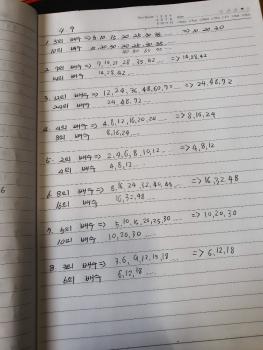 1. 5의 배수 => 5, 10, 15, 20, 25, 30, 35 ... => 10, 20, 30
10의 배수
2. 7의 배수 => 7, 14, 21, 28, 35, 42 ... => 14, 28, 42
14의 배수 14, 28, 42 ...
3. 12의 배수 => 12, 24, 36, 48, 60, 72 ... => 24, 48, 72
24의 배수 24, 48, 72 ...
4. 4의 배수 => 4, 8, 12, 16, 20, 24 ... => 8, 16, 24
8의 배수 8, 16, 24 ...
5. 2의 배수 => 2, 4, 6, 8, 10, 12 ... => 4, 8, 12
4의 배수 4, 8, 12 ...
6. 8의 배수 => 8, 16, 24, 32, 40, 48 ... => 16, 32, 48
16의 배수 16, 32, 48 ...
7. 5의 배수 => 5, 10, 15, 20, 25, 30 ... => 10, 20, 30
10의 배수 10, 20, 30 ...
8. 3의 배수 => 3, 6, 9, 12, 15, 18 ... => 6, 12, 18
6의 배수 6, 12, 18 ...